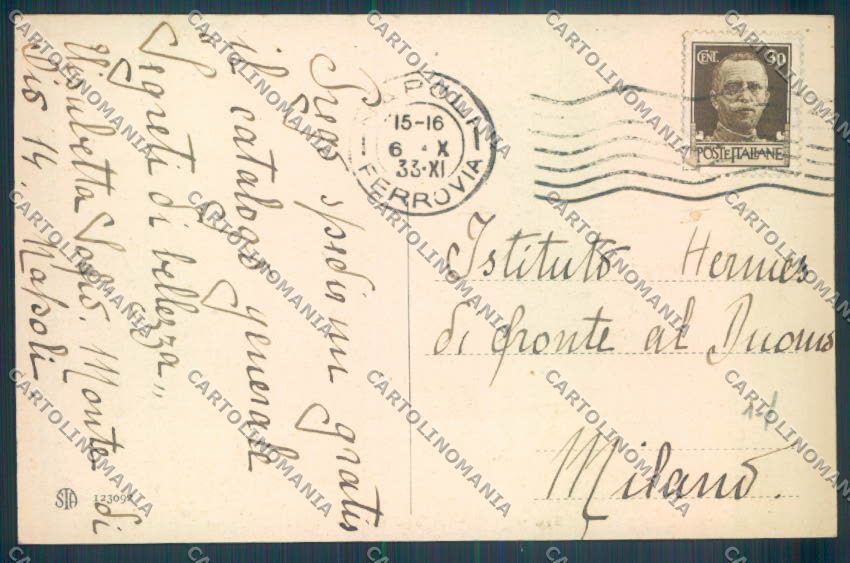 Prego spedirmi gratis
il catalogo generale
Segreti di bellezza„
Elisabetta Monte di
Dio 14. Napoli
NAPOLI
15-16
6 • X
33•XI
FERROVIA
CENT. 30
POSTE ITALIANE
Istituto Hermes
di fronte al Duomo
Milano.
14
STA 123092
CARTOLINOMANIA